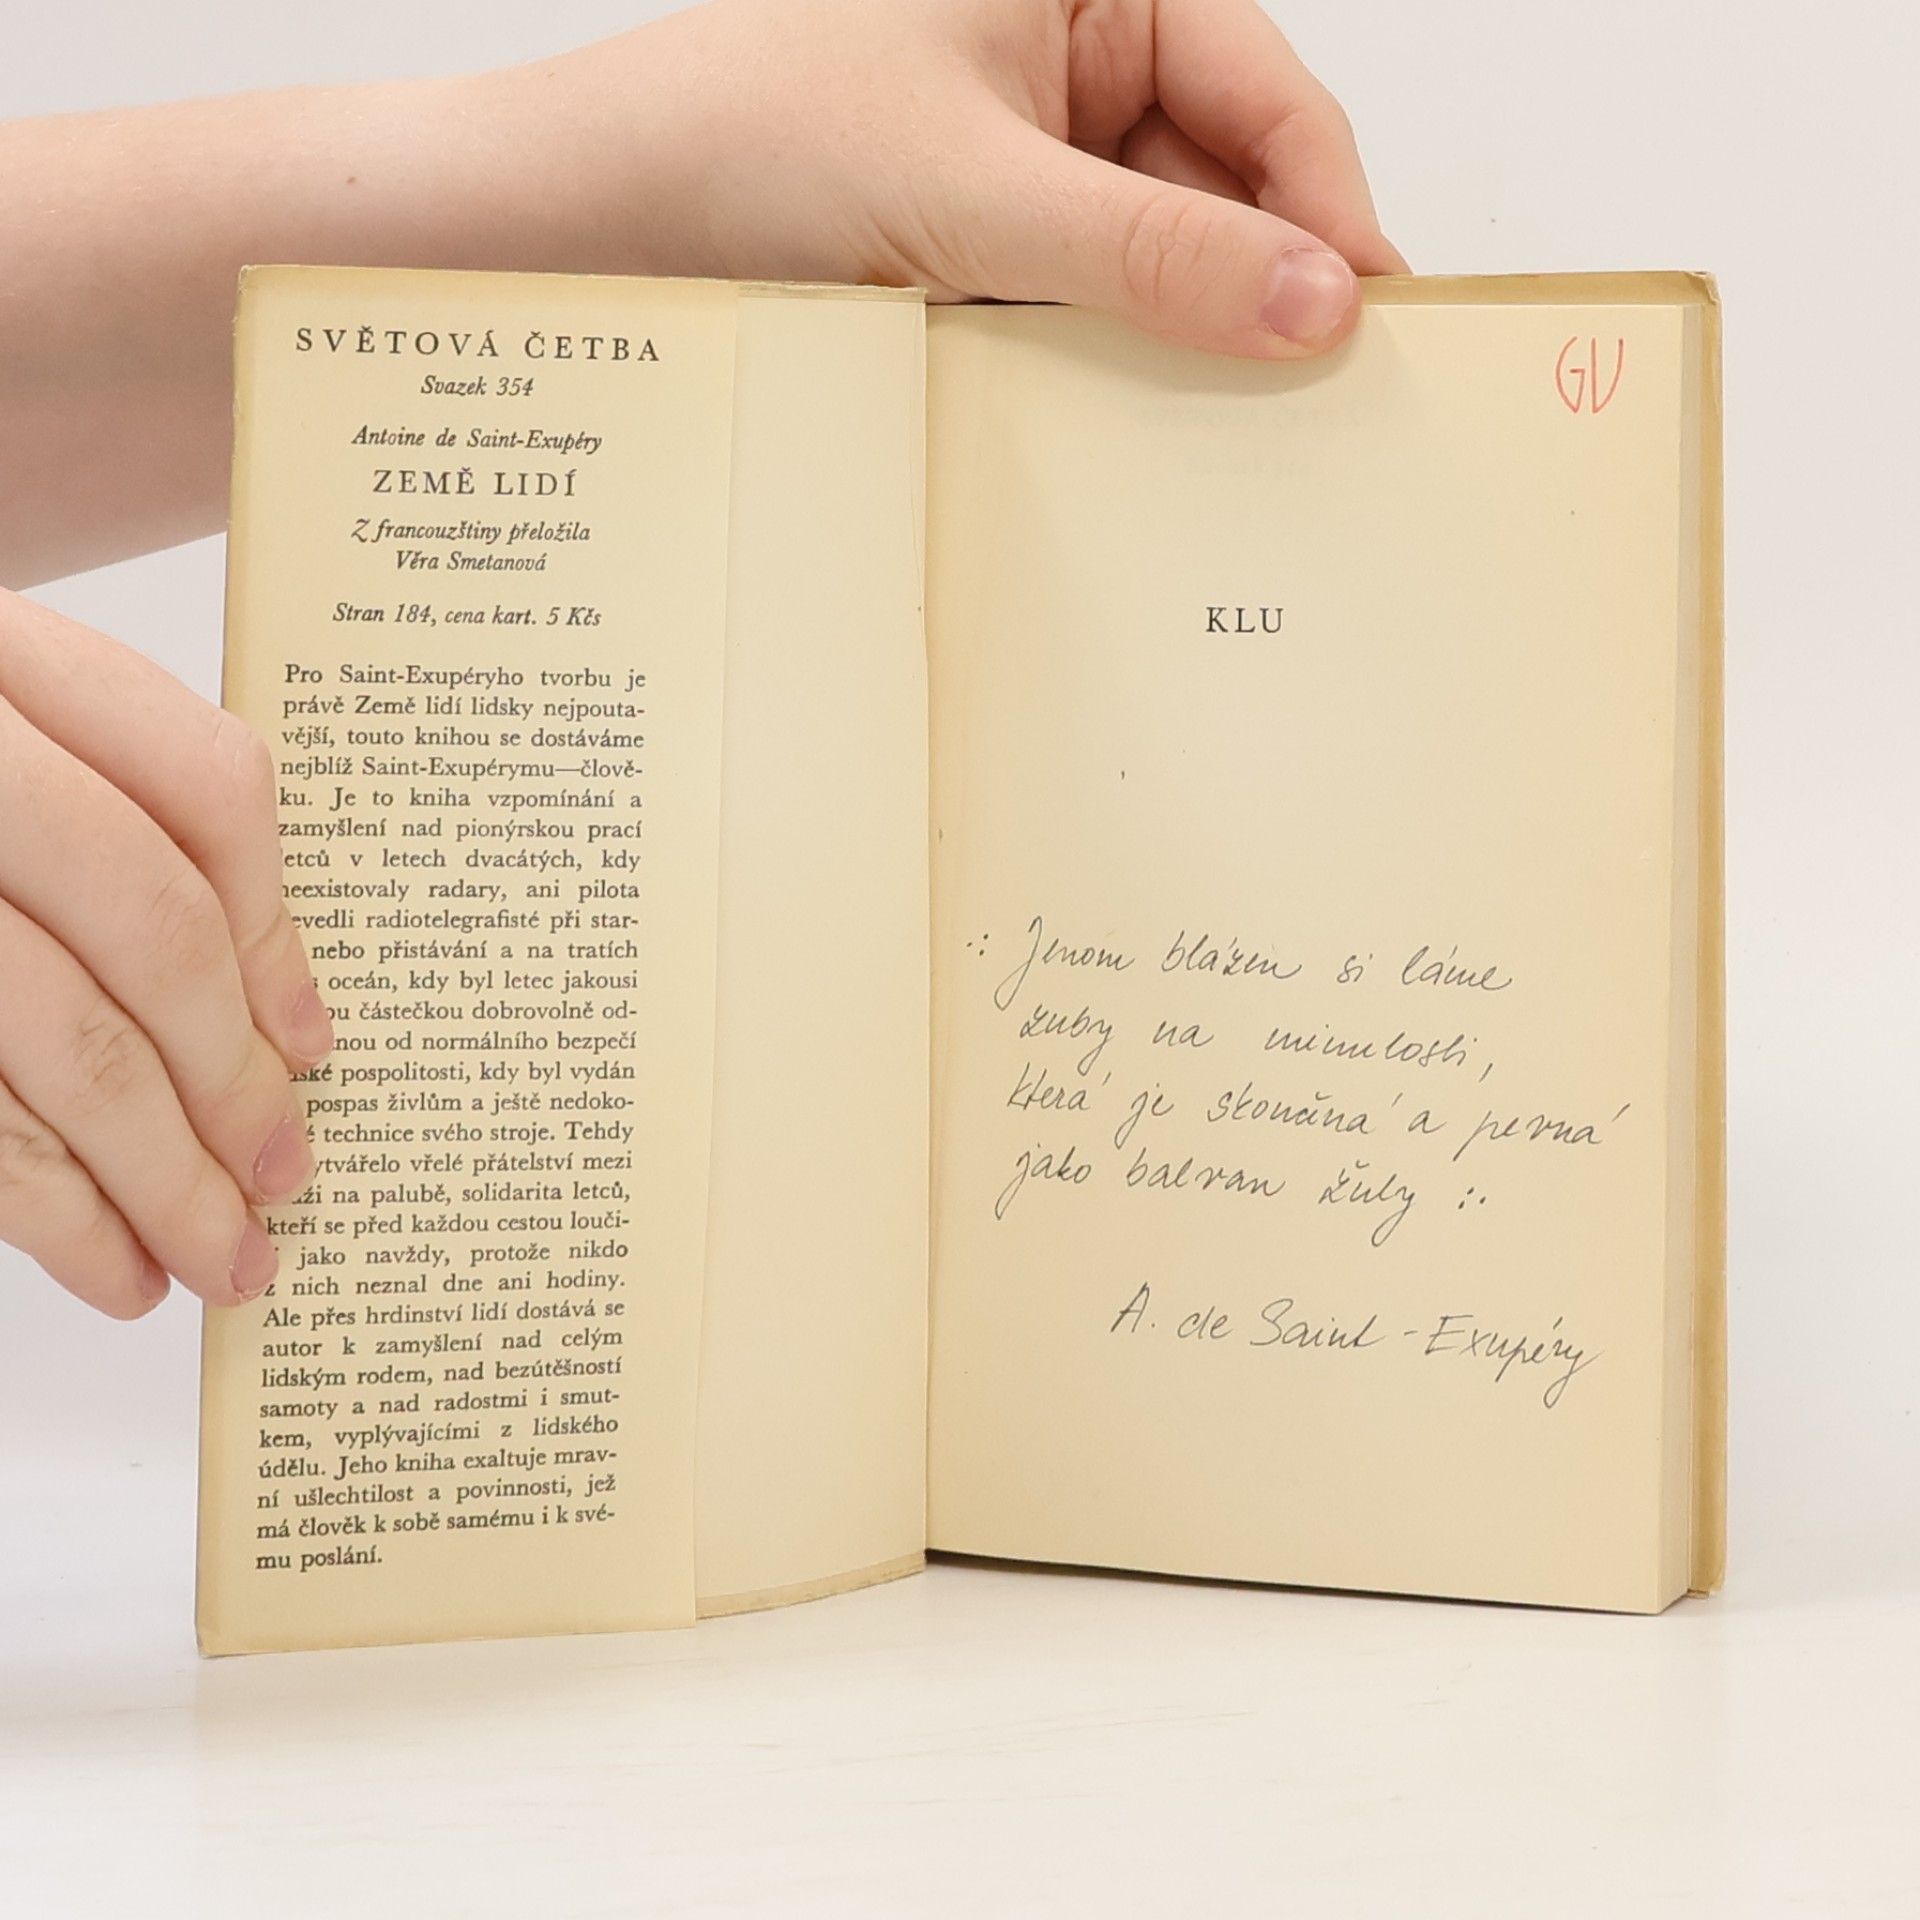 SVĚTOVÁ ČETBA
Svazek 354
Antoine de Saint-Exupéry
ZEMĚ LIDÍ
Z francouzštiny přeložila
Věra Smetanová
Stran 184, cena kart. 5 Kčs
Pro Saint-Exupéryho tvorbu je
právě Země lidí lidsky nejpouta-
vější, touto knihou se dostáváme
nejblíž Saint-Exupérymu—člově-
ku. Je to kniha vzpomínání a
zamyšlení nad pionýrskou prací
letců v letech dvacátých, kdy
neexistovaly radary, ani pilota
nevedli radiotelegrafisté při star-
nebo přistávání a na tratích
oceán, kdy byl letec jakousi
částečkou dobrovolně od-
od normálního bezpečí
pospolitosti, kdy byl vydán
pospas živlům a ještě nedoko-
technice svého stroje. Tehdy
vytvářelo vřelé přátelství mezi
na palubě, solidarita letců,
kteří se před každou cestou louči-
jako navždy, protože nikdo
z nich neznal dne ani hodiny.
Ale přes hrdinství lidí dostává se
autor k zamyšlení nad celým
lidským rodem, nad bezútěšností
samoty a nad radostmi i smut-
kem, vyplývajícími z lidského
údělu. Jeho kniha exaltuje mrav-
ní ušlechtilost a povinnosti, jež
má člověk k sobě samému i k své-
mu poslání.
GV
KLU
.: Jenom blázen si láme
zuby na minulosti,
která je skončná a pevná
jako balvan žuly :.
A. de Saint-Exupéry